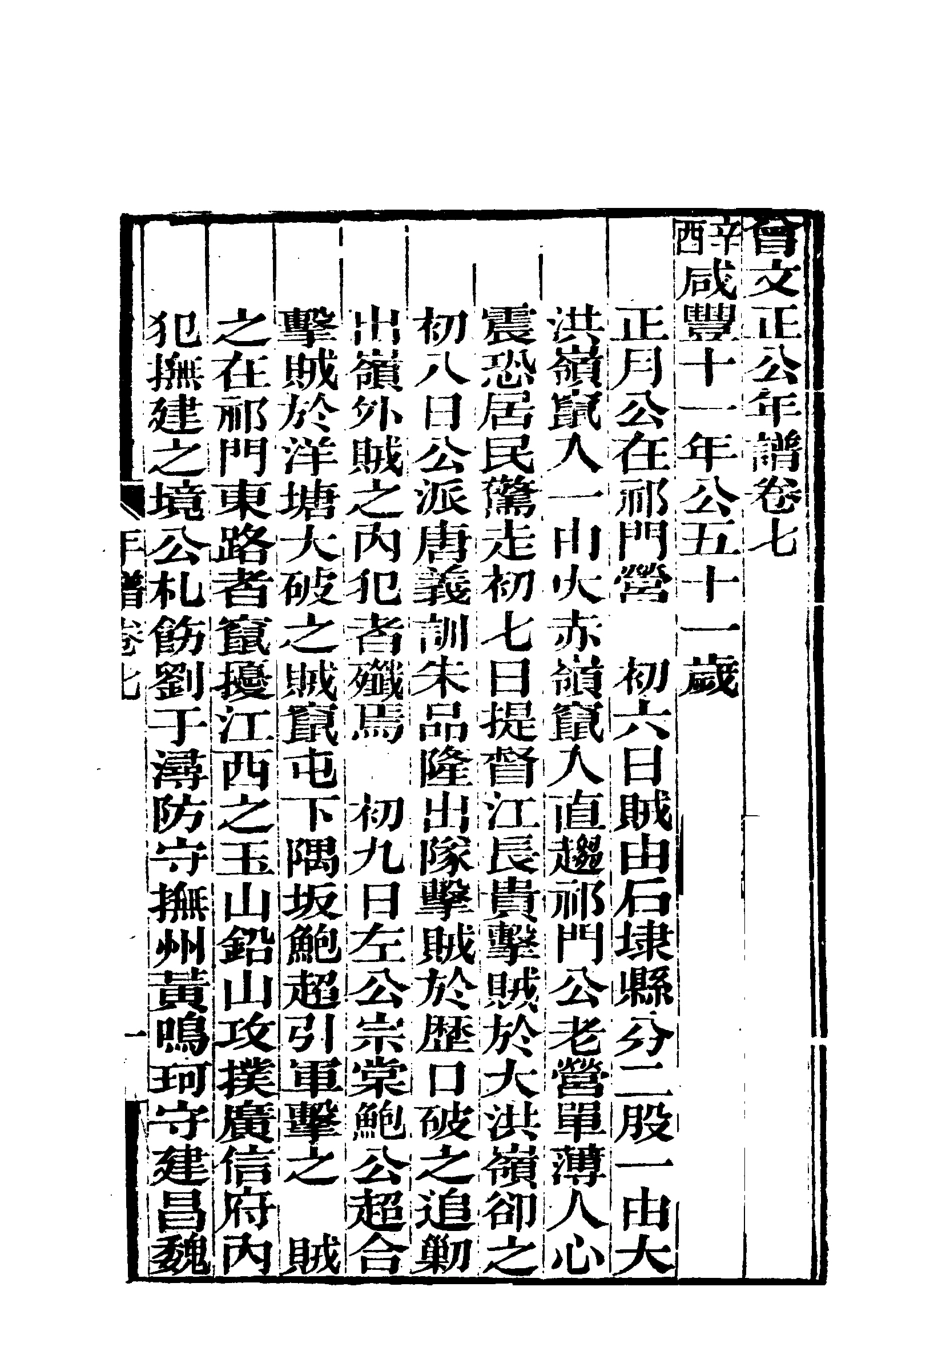 曾文正公年譜卷七
辛酉咸豐十一年公五十一歲
正月公在祁門營　初六日賊由石埭縣分二股一由大
洪嶺竄入一由大赤嶺竄入直趨祁門公老營單薄人心
震恐居民驚走初七日提督江長貴擊賊於大洪嶺卻之
初八日公派唐義訓朱品隆出隊擊賊於歷口破之追勦
出嶺外賊之內犯者殲焉　初九日左公宗棠鮑公超合
擊賊於洋塘大破之賊竄屯下隅坂鮑超引軍擊之　賊
之在祁門東路者竄擾江西之玉山鉛山攻撲廣信府內
犯撫建之境公札飭劉于潯防守撫州黃鳴珂守建昌魏
年譜卷七
一